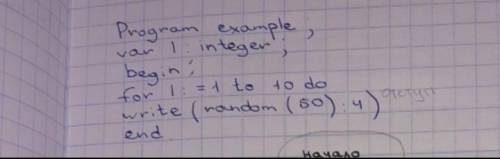 Program example;
var I: integer;
begin;
for I: = 1 to 10 do
write (random (50) : 4) отступ
end
начало